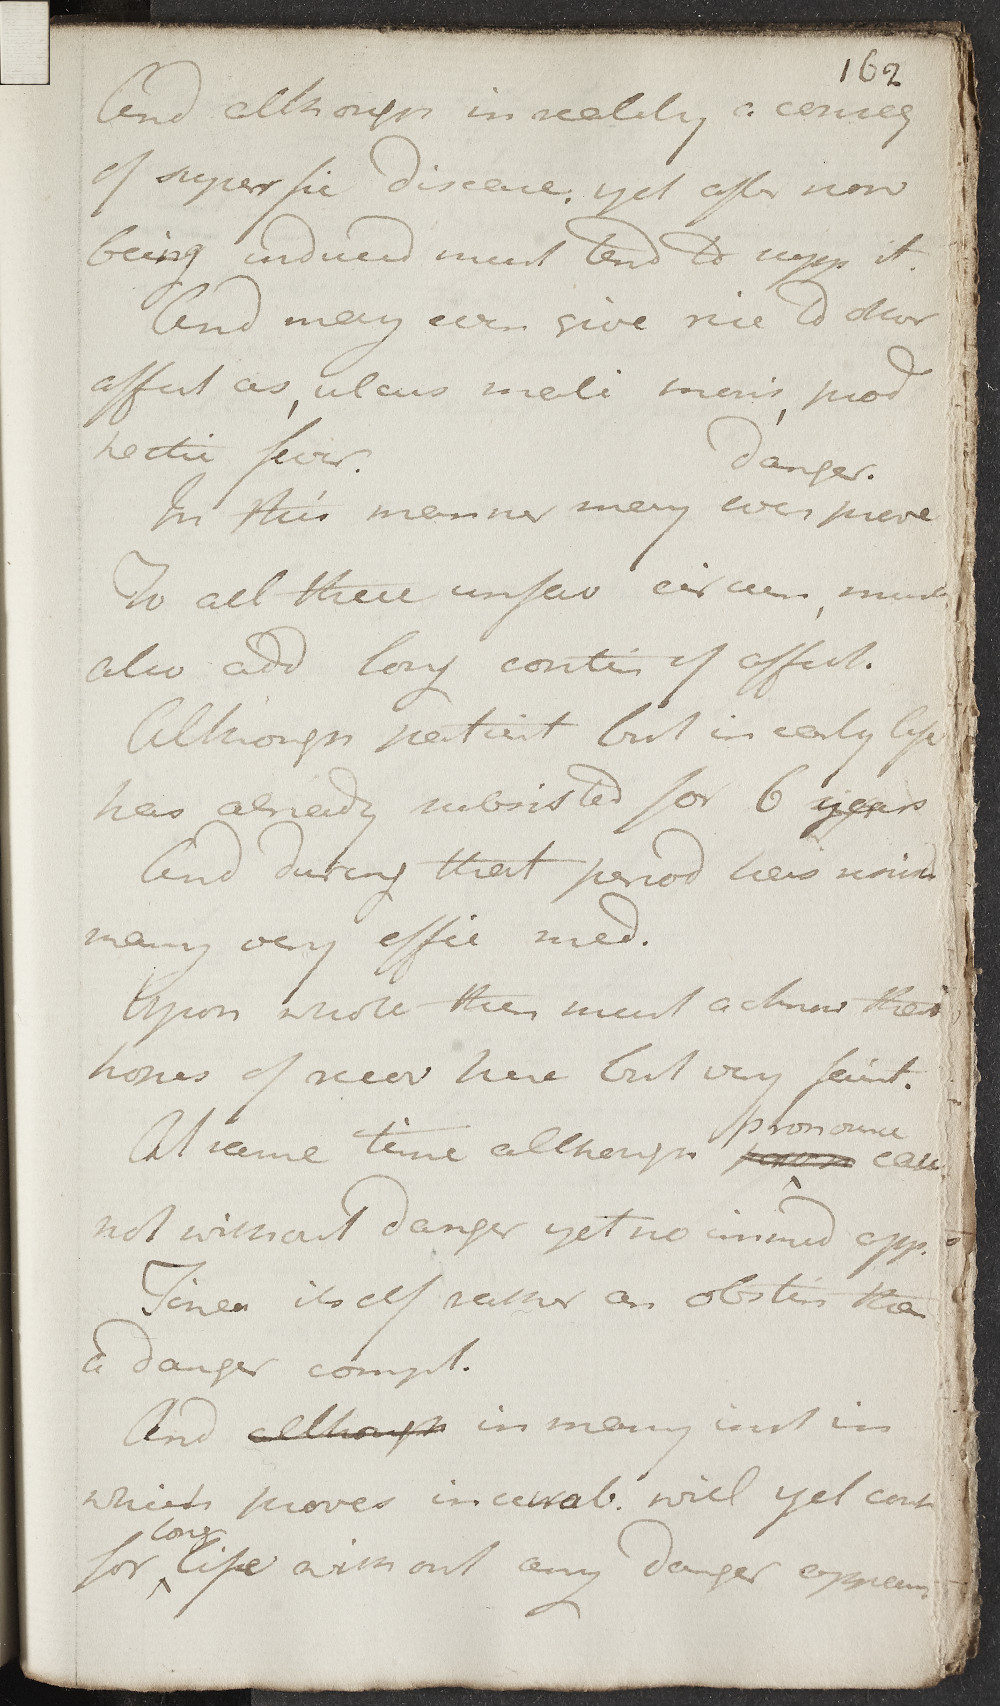 162
And although in reality a conseq
of superfic disease, yet after now
being induced must tend to supp it.
And may even give rise to other
affect as, ulcus mali moris, prod
hectic fever.
danger.
In this manner may even prove
To all these unfav circum, must
also add long contin of affect.
Although patient but in early life
has already subsisted for 6 years
And during that period has resisted
many very effic med.
Upon whole then must acknow that
hopes of recov here but very faint.
pronounce
At same time although case
not without danger yet no immed app.
Tinea itself rather an obstin than
a danger compl.
And although in many inst in
which proves incurab. will yet cont
long
for life without any danger appear